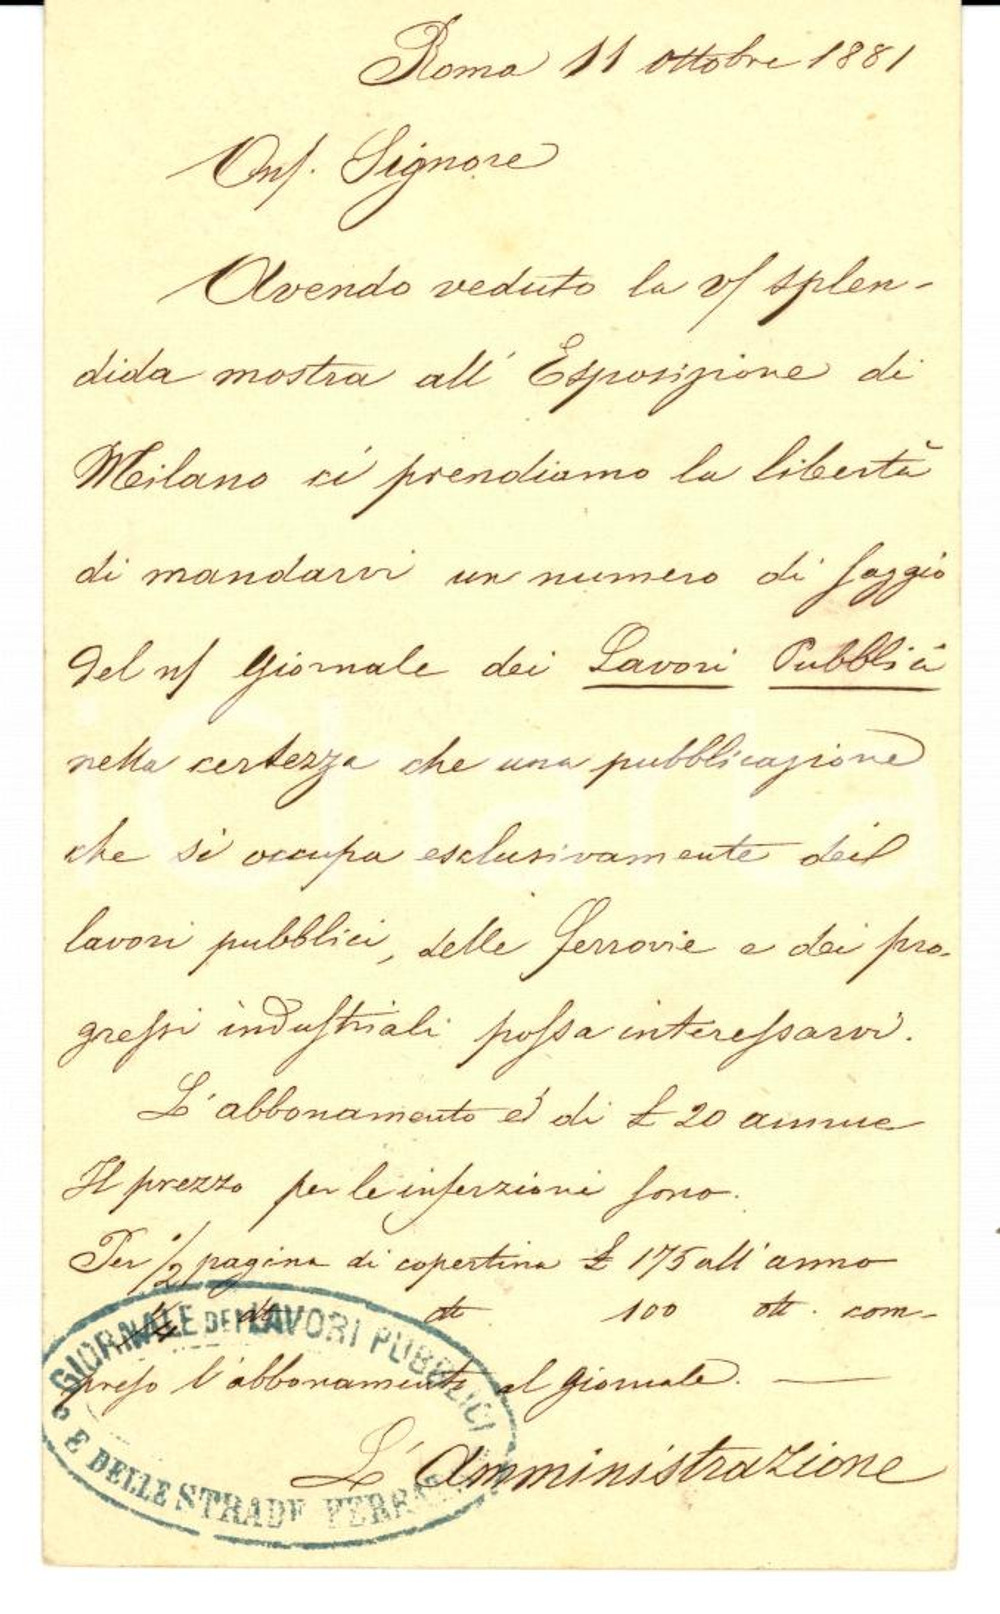 Roma 11 ottobre 1881
Onſ. Signore
Avendo veduto la v/ splen-
dida mostra all' Esposizione di
Milano ci prendiamo la libertà
di mandarvi un numero di ſaggio
del n/ Giornale dei Lavori Pubblici
nella certezza che una pubblicazione
che si occupa esclusivamente dei
lavori pubblici, delle ferrovie e dei pro-
greſsi induſtriali poſsa intereſsarvi.
L'abbonamento è di £ 20 annue
Il prezzo per le inſerzioni ſono.
Per 1/2 pagina di copertina £ 175 all'anno
1/4 dº dtt 100 dtt. com-
preſo l'abbonamento al Giornale.
L'Amministrazione
GIORNALE DEI LAVORI PUBBLICI
E DELLE STRADE FERRATE